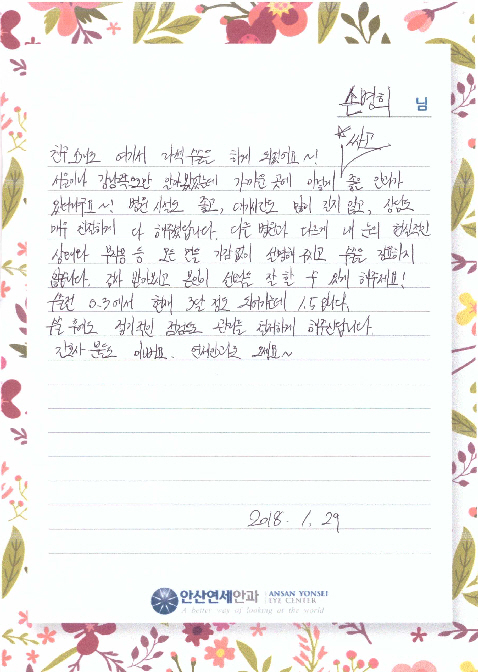 손명희 님
싸고
친구 소개로 여기서 라섹수술은 하게 되었어요~!
서울이나 강남쪽으로만 알아봤었는데 가까운 곳에 이렇게 좋은 안과가
있더라구요~! 병원 시설도 좋고, 대기시간도 많이 길지 않고, 상담도
매우 친절하게 다 해주셨습니다. 다른 병원과 다르게 내 눈의 현실적인
상태와 부작용 등 모든 면을 거짓없이 설명해주시고 수술을 강요하지
않습니다. 검사 받아보고 본인이 선택을 잘 할 수 있게 해주세요!
수술전 0.3에서 현재 3달 정도 되어가는데 1.5입니다.
수술 후에도 정기적인 검진으로 관리를 철저하게 해주십니다.
간호사 분들도 이뻐요. 연세안과로 오세요~
2018. 1. 29
안산연세안과 ANSAN YONSEI
EYE CENTER
A better way of looking at the world